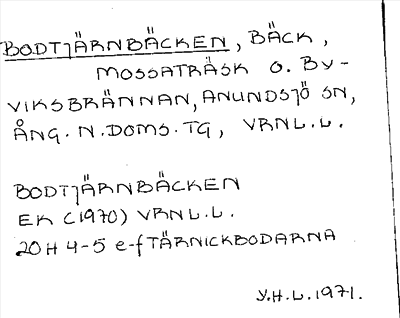 BODTJÄRNBÄCKEN, BÄCK,
MOSSATRÄSK O. BY-
VIKSBRÄNNAN, ANUNDSJÖ SN,
ÅNG. N. DOMS. TG, VRNL.L.
BODTJÄRNBÄCKEN
EK (1970) VRNL.L.
20H 4-5 e-f TÄRNICKBODARNA
Y.H.L. 1971.